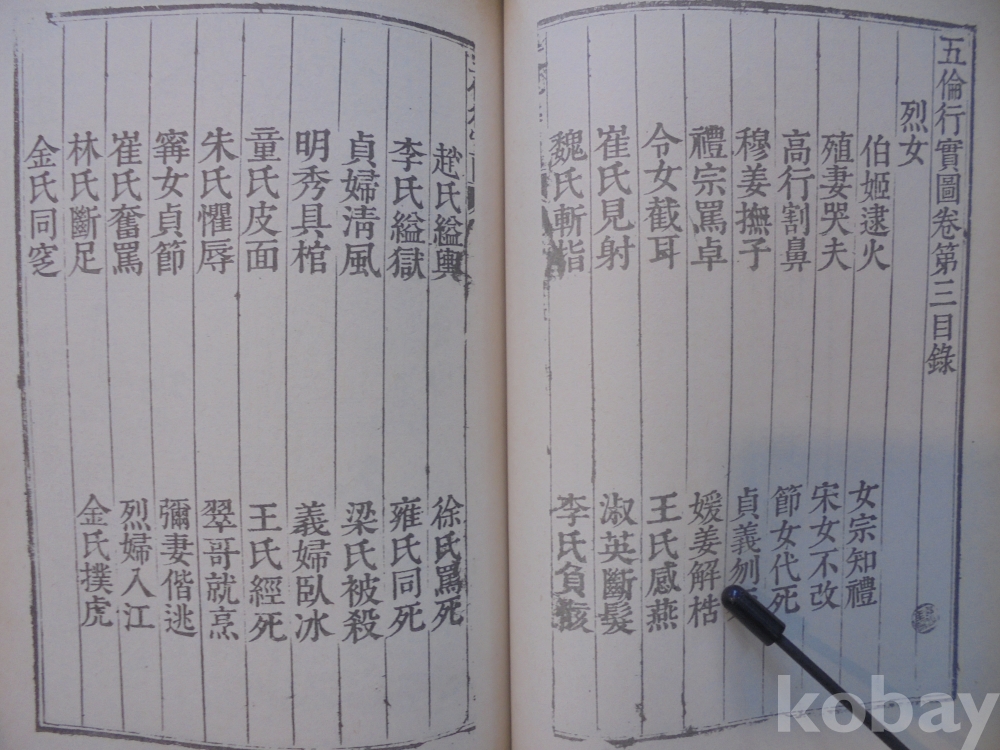 五倫行實圖卷第三目錄
烈女
伯姬逮火 女宗知禮
殖妻哭夫 宋女不改
高行割鼻 節女代死
穆姜撫子 貞義刎
禮宗罵卓 媛姜解梏
令女截耳 王氏感燕
崔氏見射 淑英斷髮
魏氏斬指 李氏負骸
趙氏縊輿 徐氏罵死
李氏縊獄 雍氏同死
貞婦淸風 梁氏被殺
明秀具棺 義婦臥冰
童氏皮面 王氏經死
朱氏懼辱 翠哥就烹
寗女貞節 彌妻偕逃
崔氏奮罵 烈婦入江
林氏斷足 金氏撲虎
金氏同窆
kobay